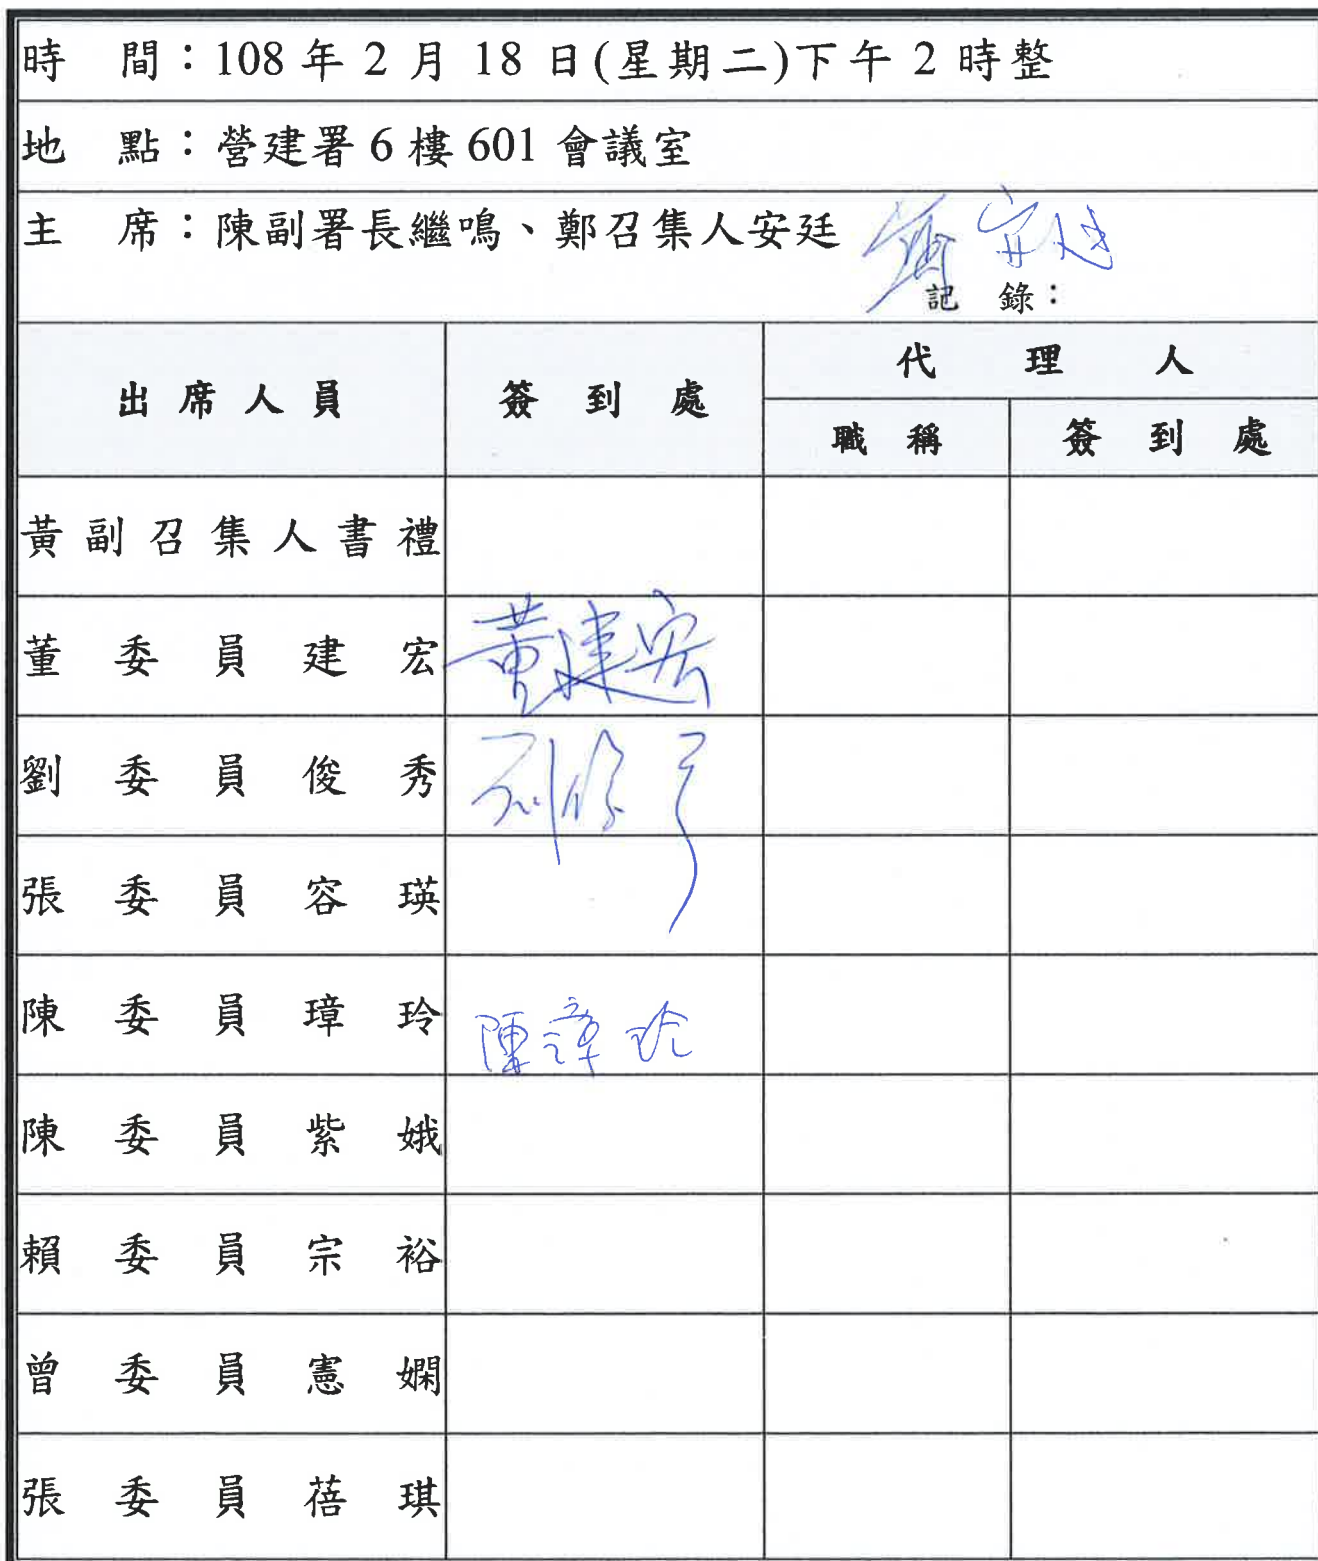 時　間：108 年 2 月 18 日(星期二)下午 2 時整
地　點：營建署 6 樓 601 會議室
主　席：陳副署長繼鳴、鄭召集人安廷
記　錄：
出席人員　簽到處　代理人
職稱　簽到處
黃副召集人書禮
董委員建宏　董建宏
劉委員俊秀　刘俊秀
張委員容瑛
陳委員璋玲　陳璋玲
陳委員紫娥
賴委員宗裕
曾委員憲嫻
張委員蓓琪